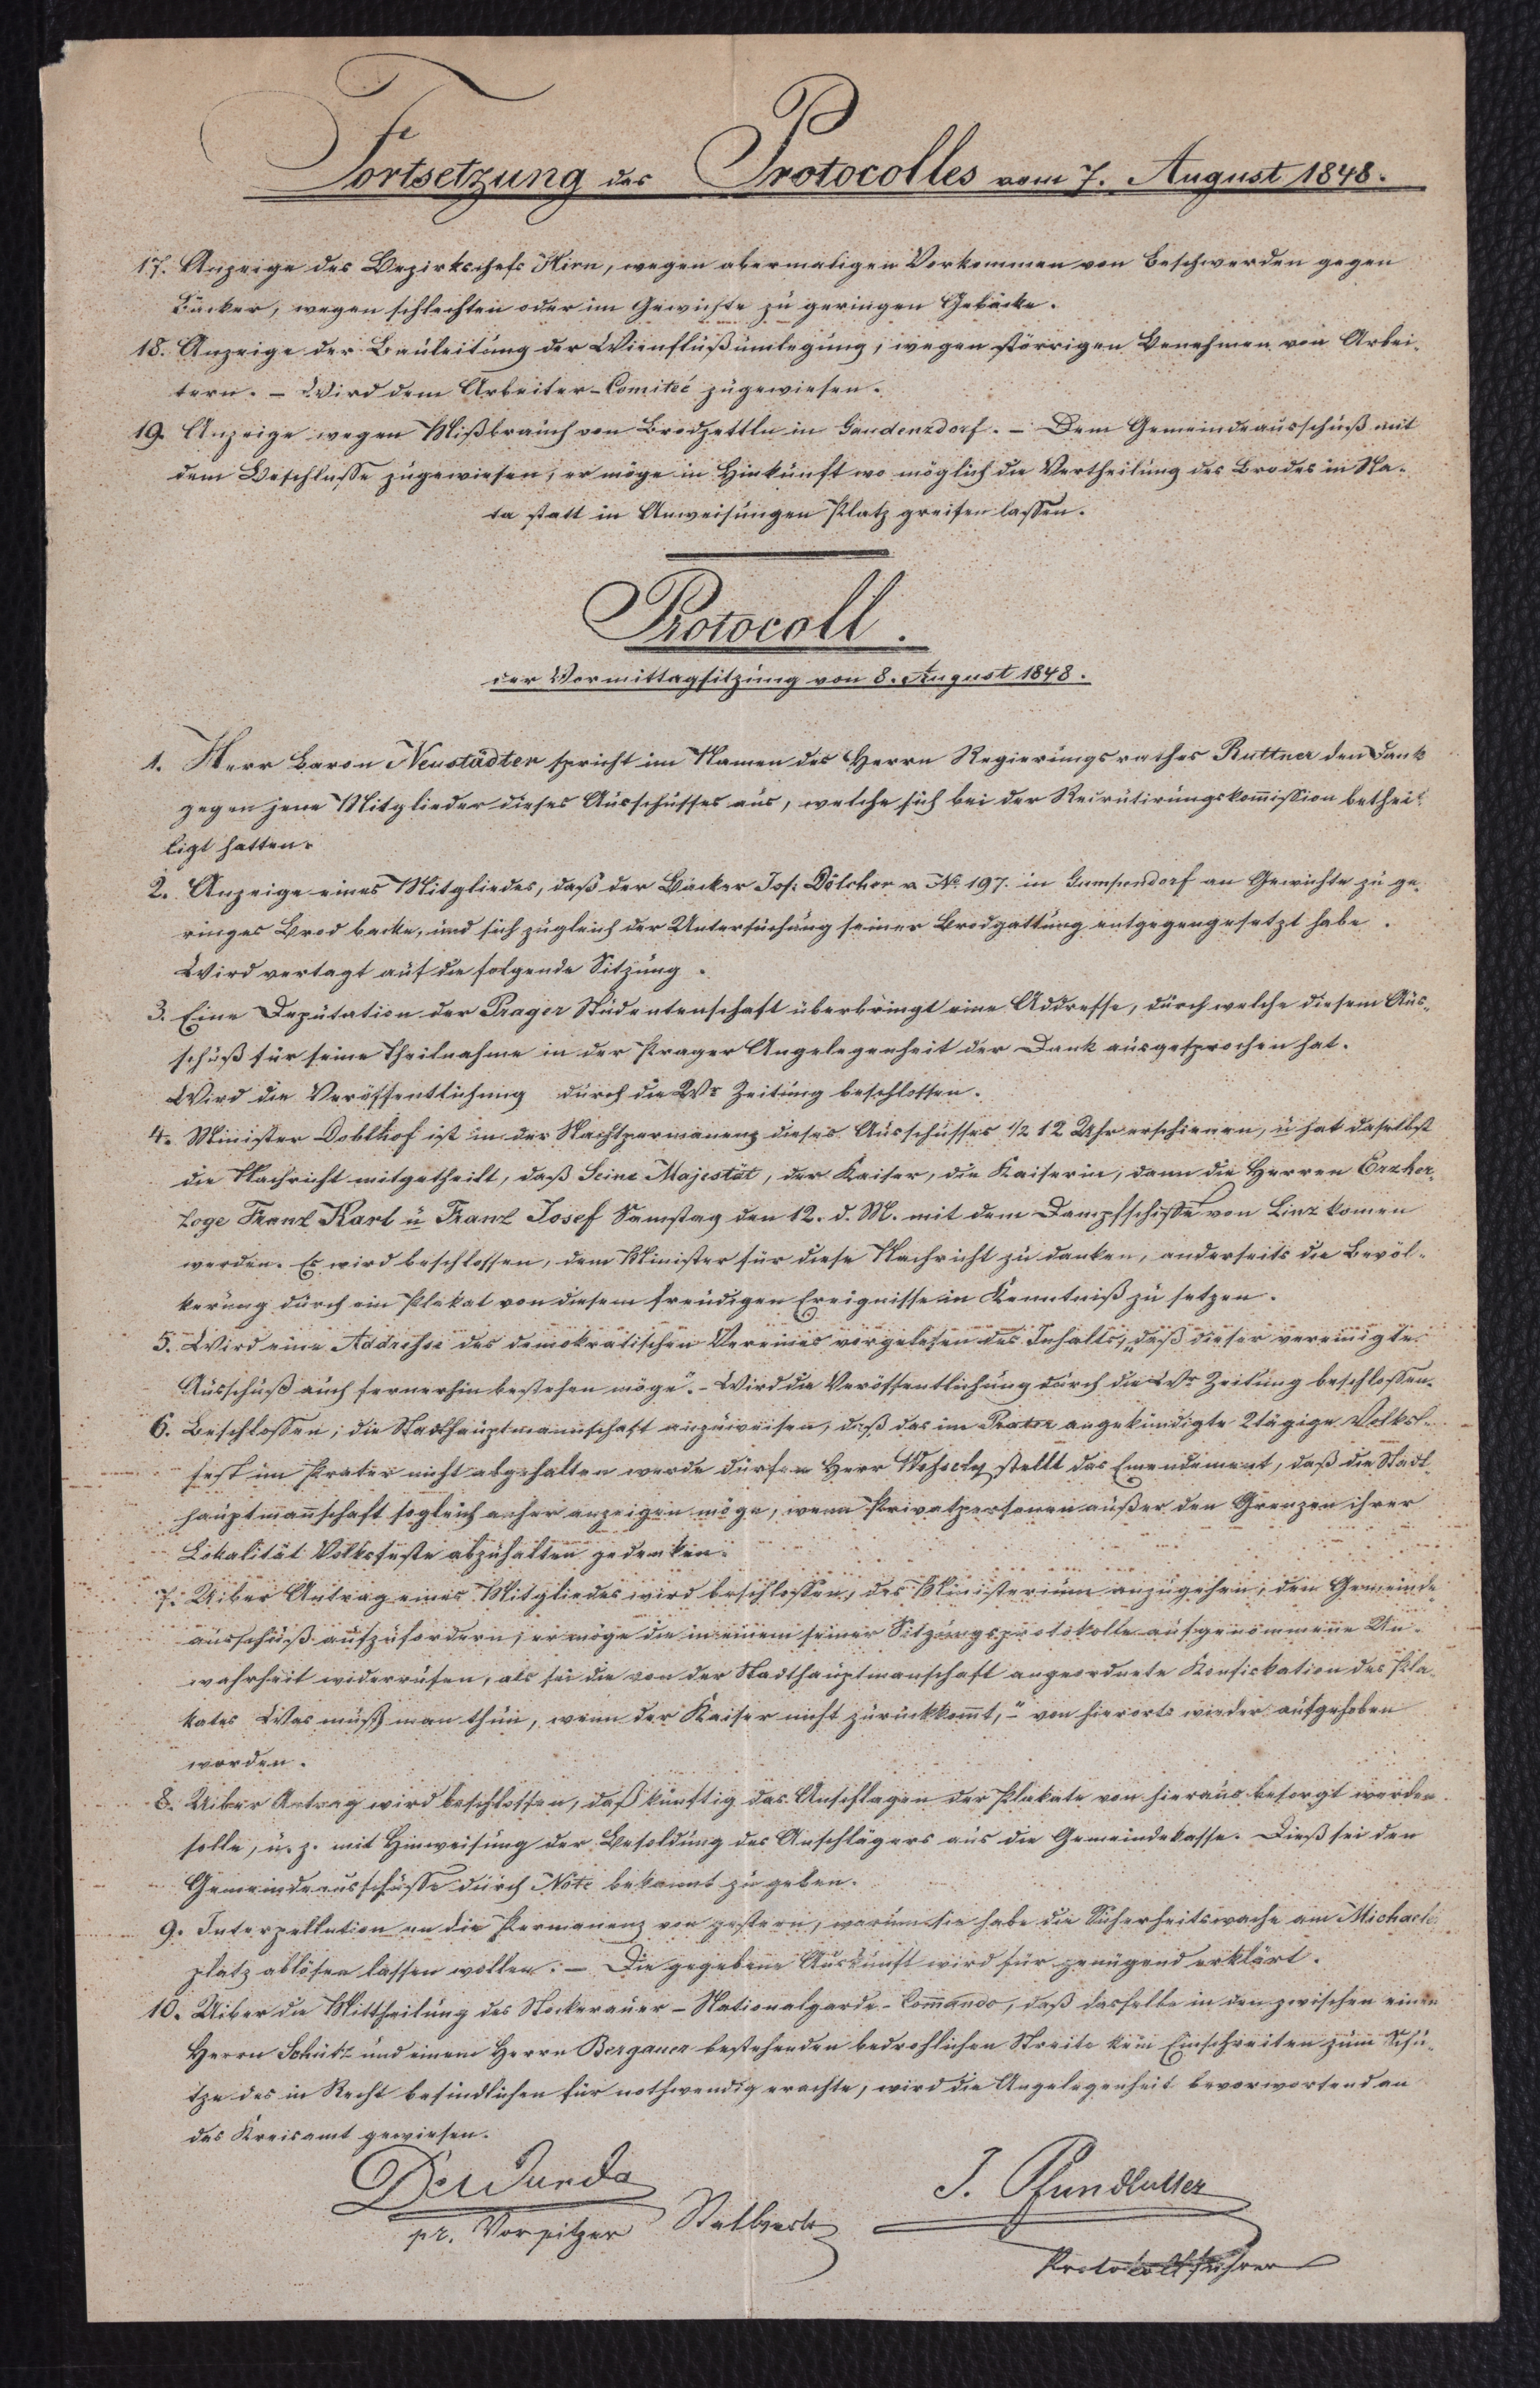 Fortsetzung des Protocolles vom 7. August 1848.
17. Anzeige des Bezirkschefs Hirn, wegen abermaligen Vorkommen von Beschwerden gegen
Bäcker, wegen schlechten oder im Gewichte zu geringen Gebäcke.
18. Anzeige der Bauleitung der Wienflußumlegung, wegen störrigen Benehmen von Arbei-
tern. – Wird dem Arbeiter-Comiteé zugewiesen.
19. Anzeige wegen Mißbrauch von Brodzettln in Gaudenzdorf. – Dem Gemeindeausschuß mit
dem Beschlusse zugewiesen, er möge in Hinkunft wo möglich die Vertheilung des Brodes in Na-
ta statt in Anweisungen Platz greifen lassen.
Protocoll.
der Vormittagsitzung von 8. August 1848.
1. Herr Baron Neustädter spricht im Namen des Herrn Regierungsrathes Ruttner den Dank
gegen jene Mitglieder dieses Ausschusses aus, welche sich bei der Recrutirungskom̅ission bethei-
ligt hatten.
2. Anzeige eines Mitgliedes, daß der Bäcker Jos: Dölcher v. No. 197. in Gumpendorf an Gewichte zu ge-
ringes Brod backe, und sich zugleich der Untersuchung seiner Brodgattung entgegengesetzt habe.
Wird vertagt auf die folgende Sitzung.
3. Eine Deputation der Prager Studentenschaft überbringt eine Addresse, durch welche diesem Aus-
schuß für seine Theilnahme in der Prager Angelegenheit der Dank ausgesprochen hat.
Wird die Veröffentlichung durch die Wr Zeitung beschlossen.
4. Minister Doblhof ist in der Nachtpermanenz dieses Ausschusses 1/2 12 Uhr erschienen, u hat daselbst
die Nachricht mitgetheilt, daß Seine Majestät, der Kaiser, die Kaiserin, dann die Herren Erzher-
zoge Franz Karl u Franz Josef Samstag den 12. d. M. mit dem Dampfschiffe von Linz kom̅en
werden. Es wird beschlossen, dem Minister für diese Nachricht zu danken, anderseits die Bevöl-
kerung durch ein Plakat von diesem freudigen Ereignisse in Kenntniß zu setzen.
5. Wird eine Addresse des demokratischen Vereines vorgelesen des Inhalts, „daß dieser vereinigte
Ausschuß auch fernerhin bestehen möge". – Wird die Veröffentlichung durch die Wr Zeitung beschlossen.
6. Beschlossen, die Stadthauptmannschaft anzuweisen, daß das im Prater angekündigte 2tägige Volks-
fest im Prater nicht abgehalten werde dürfen Herr Wessely stellt das Emendement, daß die Stadt-
hauptman̅schaft sogleich anher anzeigen möge, wenn Privatpersonen außer den Grenzen ihrer
Lokalität Volksfeste abzuhalten gedenken.
7. Uiber Antrag eines Mitgliedes wird beschlossen, das Ministerium anzugehen, den Gemeinde-
ausschuß aufzufordern, er möge die in einem seiner Sitzungsprotokolle aufgenommene Un-
wahrheit widerrufen, als sei die von der Stadthauptmanschaft angeordnete Konfiskation des Pla-
kates Was muß man thun, wenn der Kaiser nicht zurückkom̅t," von hierorts wieder aufgehoben
worden.
8. Uiber Antrag wird beschlossen, daß künftig das Anschlagen der Plakate von hieraus besorgt werden
solle, u. z. mit Hinweisung der Besoldung des Anschlägers aus die Gemeindekasse. Dieß sei den
Gemeindeausschüsse durch Note bekannt zu geben.
9. Interpellation an die Permanenz von gestern, warum sie habe die Sicherheitswache am Michaels
platz ablösen lassen wollen. – Die gegebene Auskunft wird für genügend erklärt.
10. Uiber die Mittheilung des Stockerauer-Nationalgarde-Com̅ando, daß dasselbe in den zwischen einen
Herrn Schütz und einem Herrn Bergauer bestehenden bedrohlichen Streite kein Einschreiten zum Schu-
tze des in Recht befindlichen für nothwendig erachte, wird die Angelegenheit bevorwortend an
das Kreisamt gewiesen.
J.
pr. Vorsitzer
Protokollführer